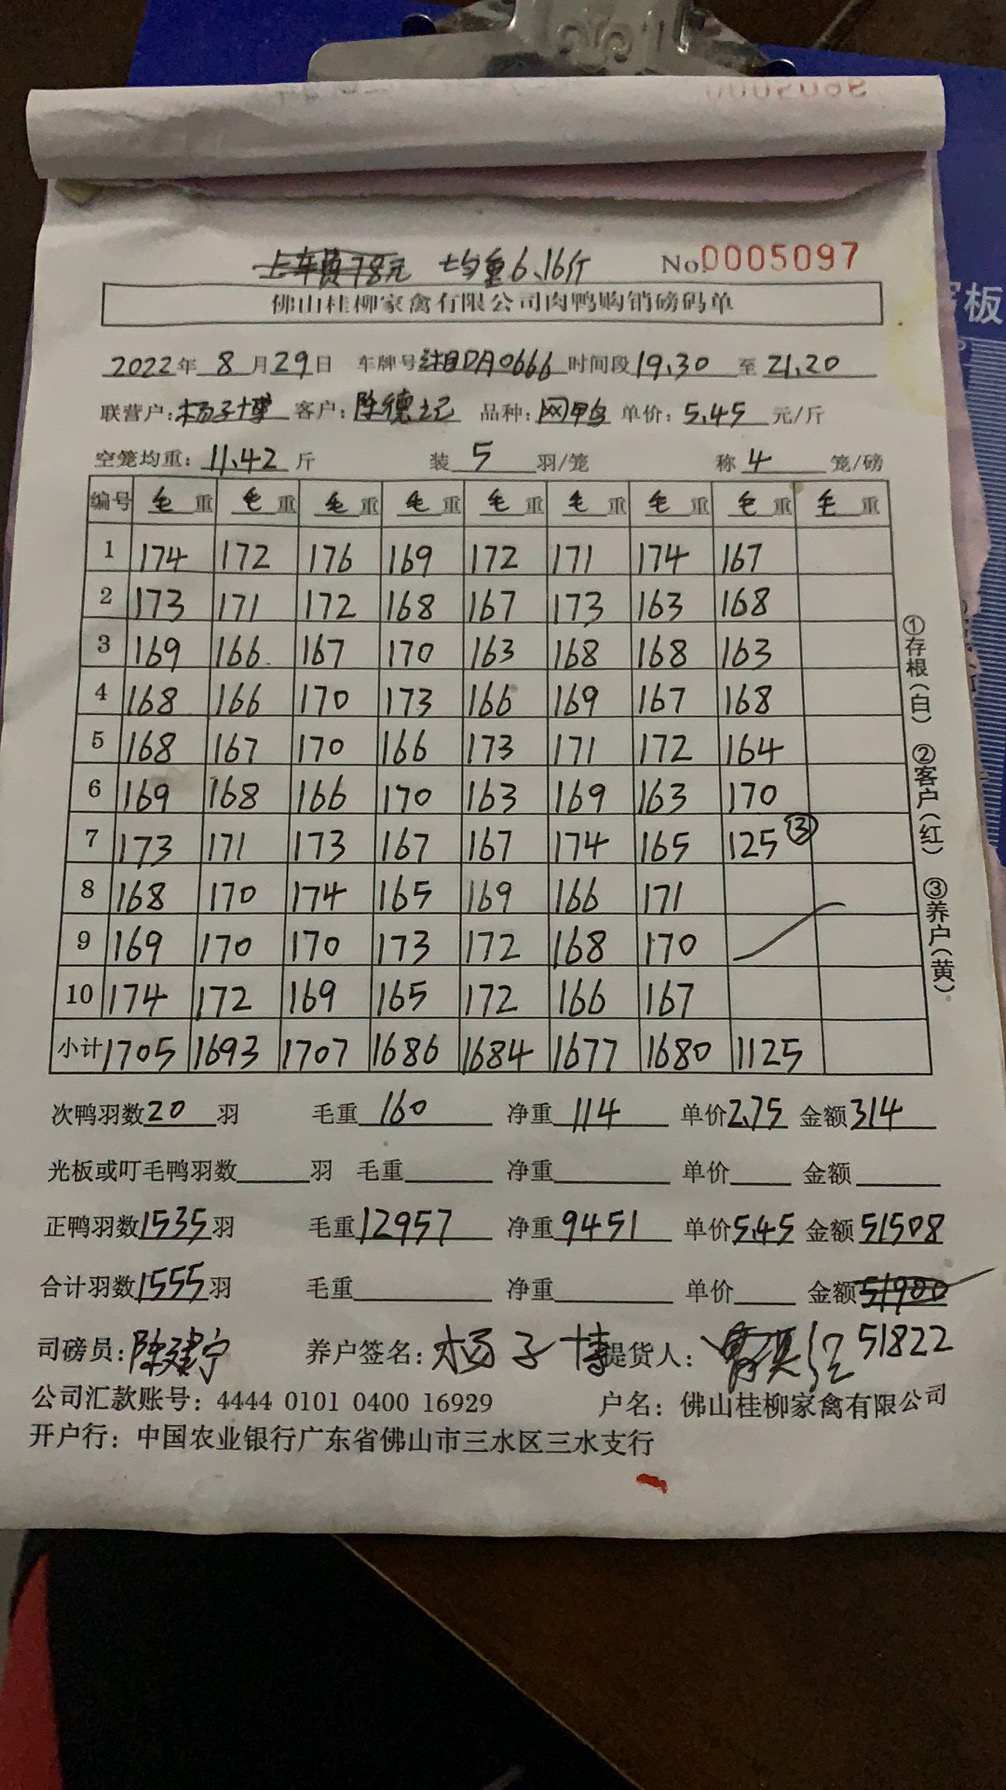 0005098
上车费78元 均重6.16斤 No.0005097
佛山桂柳家禽有限公司肉鸭购销磅码单
2022年 8月29日 车牌号 DA0666 时间段19.30 至 21.20
联营户:杨子博 客户:陈德记 品种:网鸭 单价:5.45 元/斤
空笼均重:11.42 斤 装 5 羽/笼 称 4 笼/磅
编号 毛重 毛重 毛重 毛重 毛重 毛重 毛重 毛重 毛重
1 174 172 176 169 172 171 174 167
2 173 171 172 168 167 173 163 168
3 169 166 167 170 163 168 168 163
4 168 166 170 173 166 169 167 168
5 168 167 170 166 173 171 172 164
6 169 168 166 170 163 169 163 170
7 173 171 173 167 167 174 165 125 ③
8 168 170 174 165 169 166 171
9 169 170 170 173 172 168 170
10 174 172 169 165 172 166 167
小计 1705 1693 1707 1686 1684 1677 1680 1125
①存根(白) ②客户(红) ③养户(黄)
次鸭羽数20羽 毛重160 净重114 单价2.75 金额314
光板或叮毛鸭羽数 羽 毛重 净重 单价 金额
正鸭羽数1535羽 毛重12957 净重9451 单价5.45 金额51508
合计羽数1555羽 毛重 净重 单价 金额51900
司磅员:陈建宁 养户签名:杨子博 提货人: 51822
公司汇款账号:4444 0101 0400 16929 户名:佛山桂柳家禽有限公司
开户行:中国农业银行广东省佛山市三水区三水支行
板